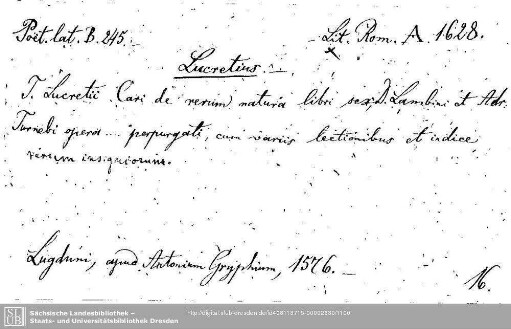 Poët. lat. B. 245.
Lit. Rom. A. 1628.
Lucretius.
T. Lucretii Cari de rerum natura libri sex, D. Lambini et Adr.
Turnebi opera ... perpurgati, cum variis lectionibus et indice
rerum insigniorum.
Lugduni, apud Antonium Gryphium, 1576.
16.
SLUB
Sächsische Landesbibliothek –
Staats- und Universitätsbibliothek Dresden